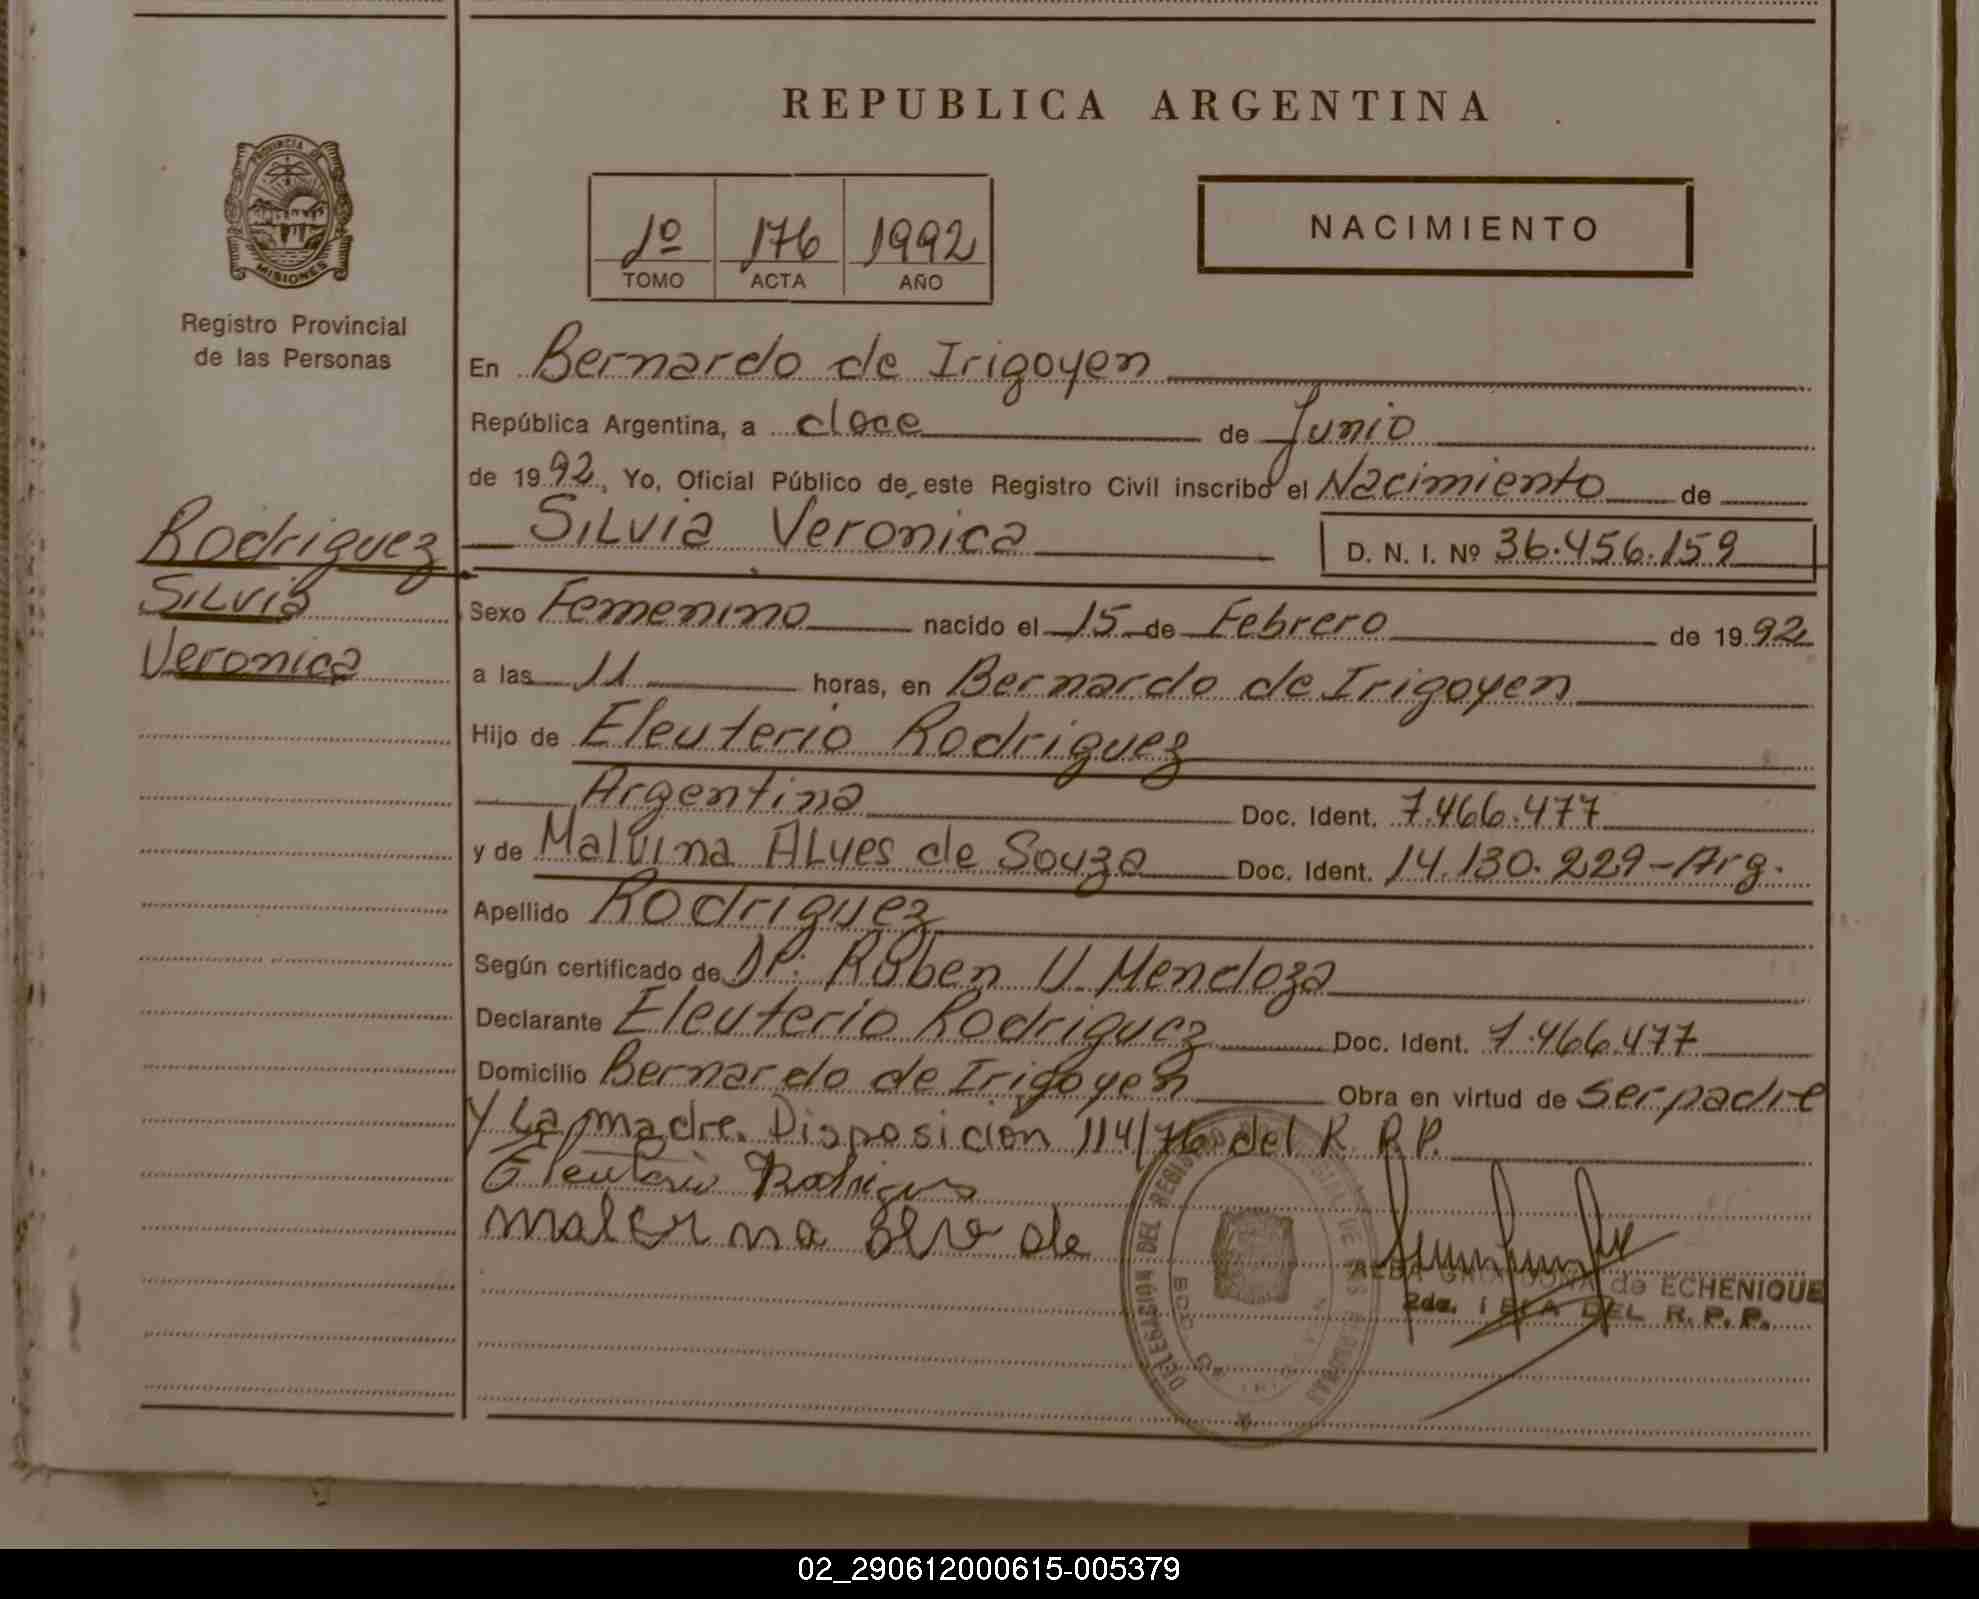 REPUBLICA ARGENTINA
PROVINCIA DE
MISIONES
Registro Provincial
de las Personas
1º 176 1992
TOMO ACTA AÑO
NACIMIENTO
En Bernardo de Irigoyen
República Argentina, a doce de Junio
de 1992, Yo, Oficial Público de este Registro Civil inscribo el Nacimiento de
Silvia Veronica D. N. I. Nº 36.456.159
Rodriguez
Silvia
Veronica
Sexo Femenino nacido el 15 de Febrero de 1992
a las 11 horas, en Bernardo de Irigoyen
Hijo de Eleuterio Rodriguez
Argentina Doc. Ident. 7.466.477
y de Malvina Alves de Souza Doc. Ident. 14.130.229-Arg.
Apellido Rodriguez
Según certificado de Dr. Ruben U. Mendoza
Declarante Eleuterio Rodriguez Doc. Ident. 7.466.477
Domicilio Bernardo de Irigoyen Obra en virtud de ser padre
y La madre. Disposicion 114/76 del R. P.P.
Eleuterio Rodrigues
DELEGACION DEL REGISTRO
de ECHENIQUE
DEL R. P. P.
02_290612000615-005379